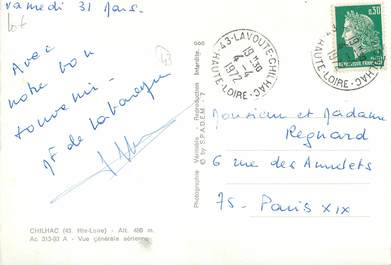 Samedi 31 Mars.
lot
43
Avec
notre bon
souvenir -
CHILHAC (43. Hte-Loire) - Alt. 486 m.
Ac 313-93 A - Vue générale aérienne
Photographie Véritable - Reproduction Interdite
© by S.P.A.D.E.M. - 7
43-LAVOUTE-CHILHAC
19H30
4-4
1972
HAUTE-LOIRE
0,30
REPUBLIQUE FRANÇAISE
Monsieur et Madame
Regnard
6 rue des Annelets
75 - Paris XIX